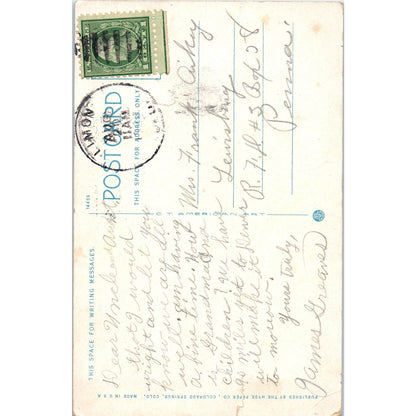 POST CARD
THIS SPACE FOR ADDRESS ONLY
14435
THIS SPACE FOR WRITING MESSAGES
LIMON
AUG
1 CENT 1
Mrs. Frank
Lewisburg
R. F. D. #3 Box 58
Penna.
Dear Uncle & Aunt,
thot I would
wright and let you
know we are all
well. am having
a fine time. How
is Grandma and
children? we have
90 miles to Denver
will make it
to morrow.
Yours truly,
James Greaves
PUBLISHED BY THE HYDE PAPER CO., COLORADO SPRINGS, COLO. MADE IN U S A